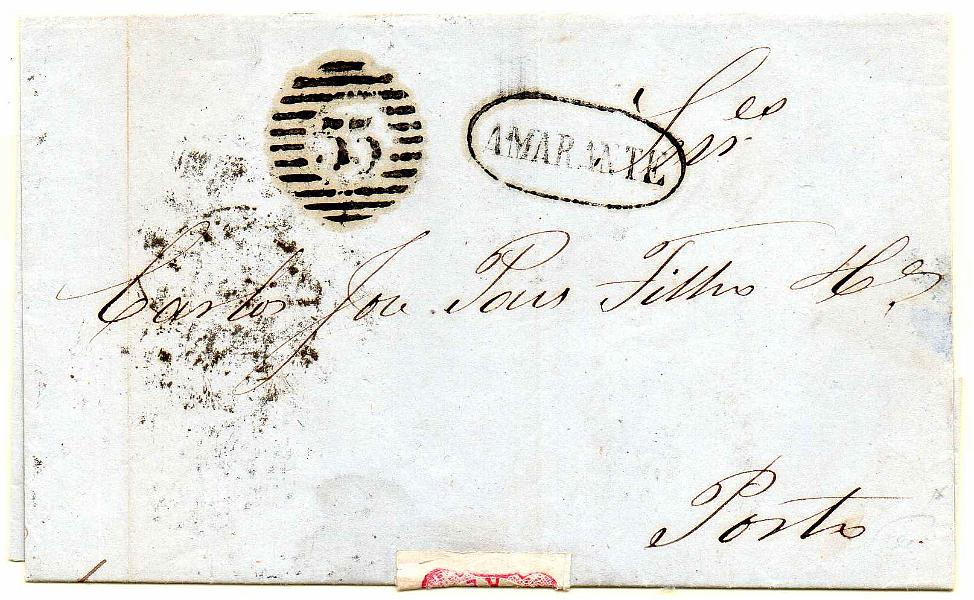 55
AMARANTE
Snr.es
Carlos Joze Pais Filho H.es
Porto